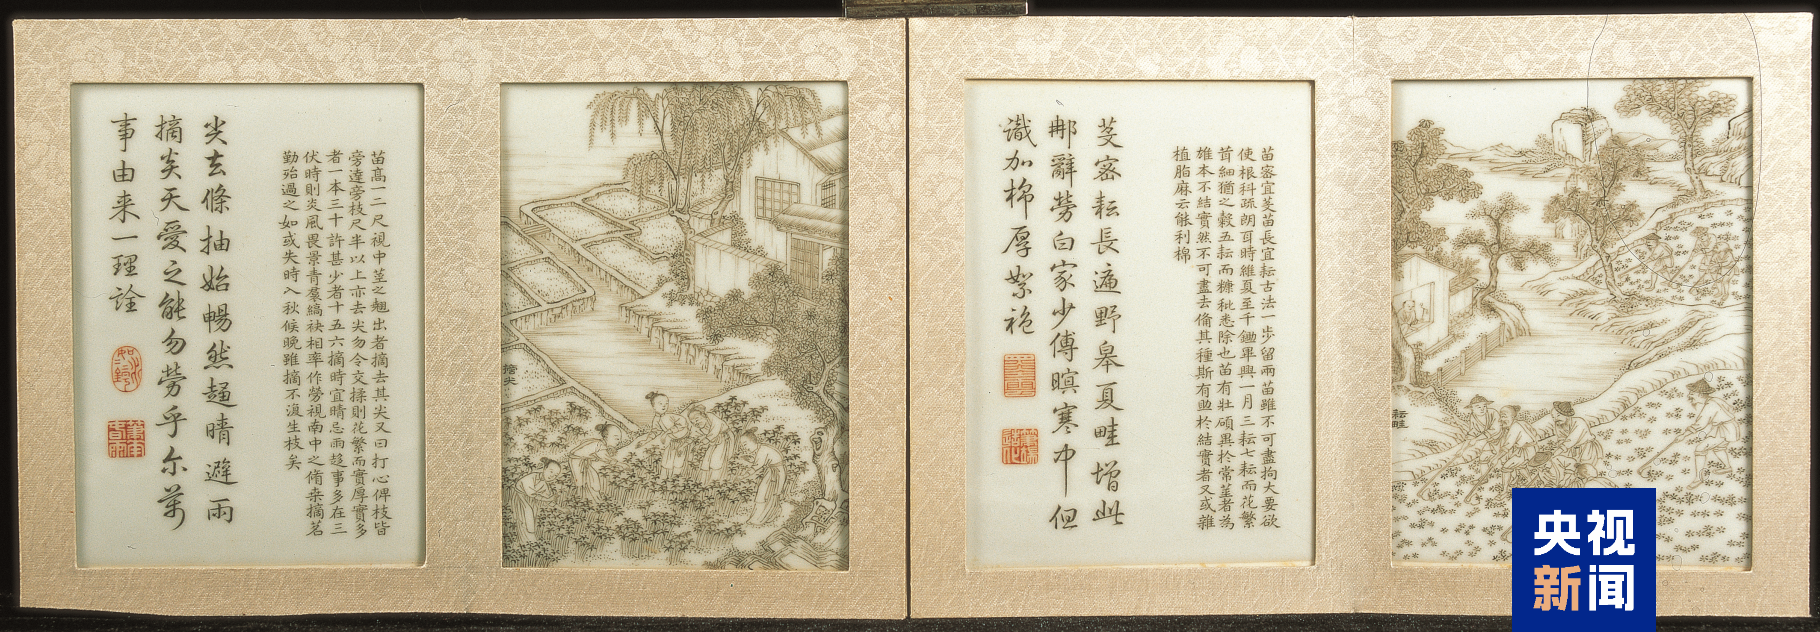 耘畦
苗密宜芟苗長宜耘古法一步留兩苗雖不可盡拘大要欲
使根科疏朗耳時維夏至千鋤畢興一月三耘七耘而花繁
茸細猶之穀五耘而糠秕悉除也苗有壯碩異於常莖者為
雄本不結實然不可盡去備其種斯有助於結實者又或雜
植脂麻云能利棉
芟密耘長遍野皋夏畦增此
郍辭勞白家少傅暝寒巾但
識加棉厚絮袍
摘尖
苗高一二尺視中莖之翹出者摘去其尖又曰打心俾枝皆
旁達旁枝尺半以上亦去尖勿令交揉則花繁而實厚實多
者一本三十許甚少者十五六摘時宜晴忌雨趨事多在三
伏時則炎風畏景青裙縞袂相率作勞視南中之脩桑摘茗
勤殆過之如或失時入秋候晚雖摘不復生枝矣
尖去條抽始暢然趨晴避雨
摘炎天愛之能勿勞乎尔萬
事由来一理詮
央视
新闻